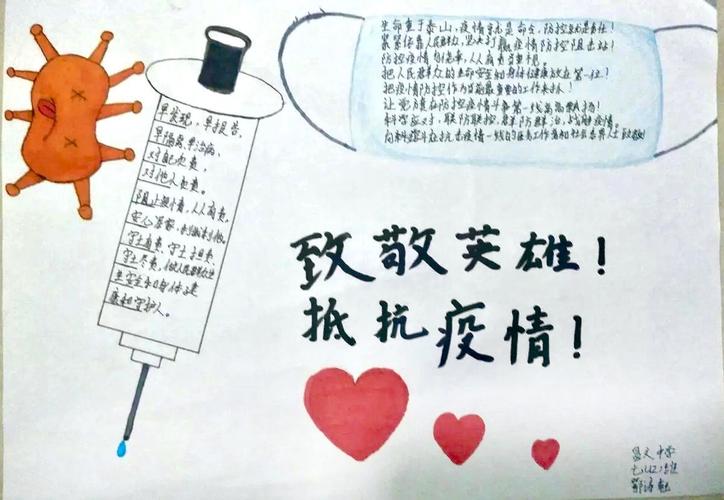 生命重于泰山,疫情就是命令,防控就是责任!
紧紧依靠人民群众,坚决打赢疫情防控阻击战!
防控疫情
人人有责
把人民群众的生命安全和身体健康放在第一位!
把疫情防控作为当前最重要的工作来抓!
让党旗在防控疫情斗争第一线高高飘扬!
科学应对,联防联控,群防群治,战胜疫情。
向科学
抗击疫情一线的医务工作者和社会各界人士致敬!
早发现,早报告,
早隔离,早治病、
对自己负责,
对他人负责。
阻止疫情,人人有责,
安心居家,
守土有责,守土担责,
守土尽责,做人民群众生
命安全和身体健
康的守护人。
致敬英雄!
抵抗疫情!
昌文中学